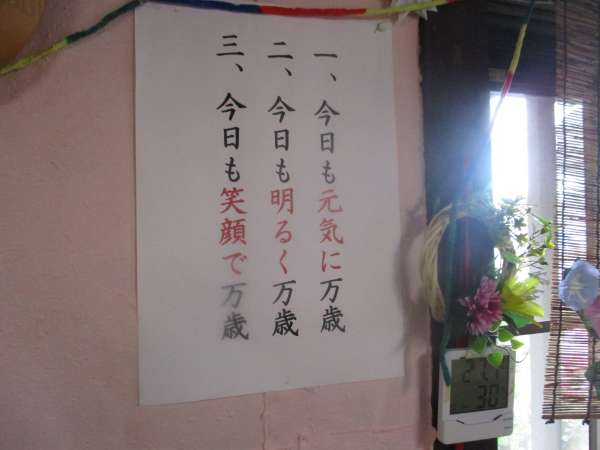 一、今日も元気に万歳
二、今日も明るく万歳
三、今日も笑顔で万歳
30